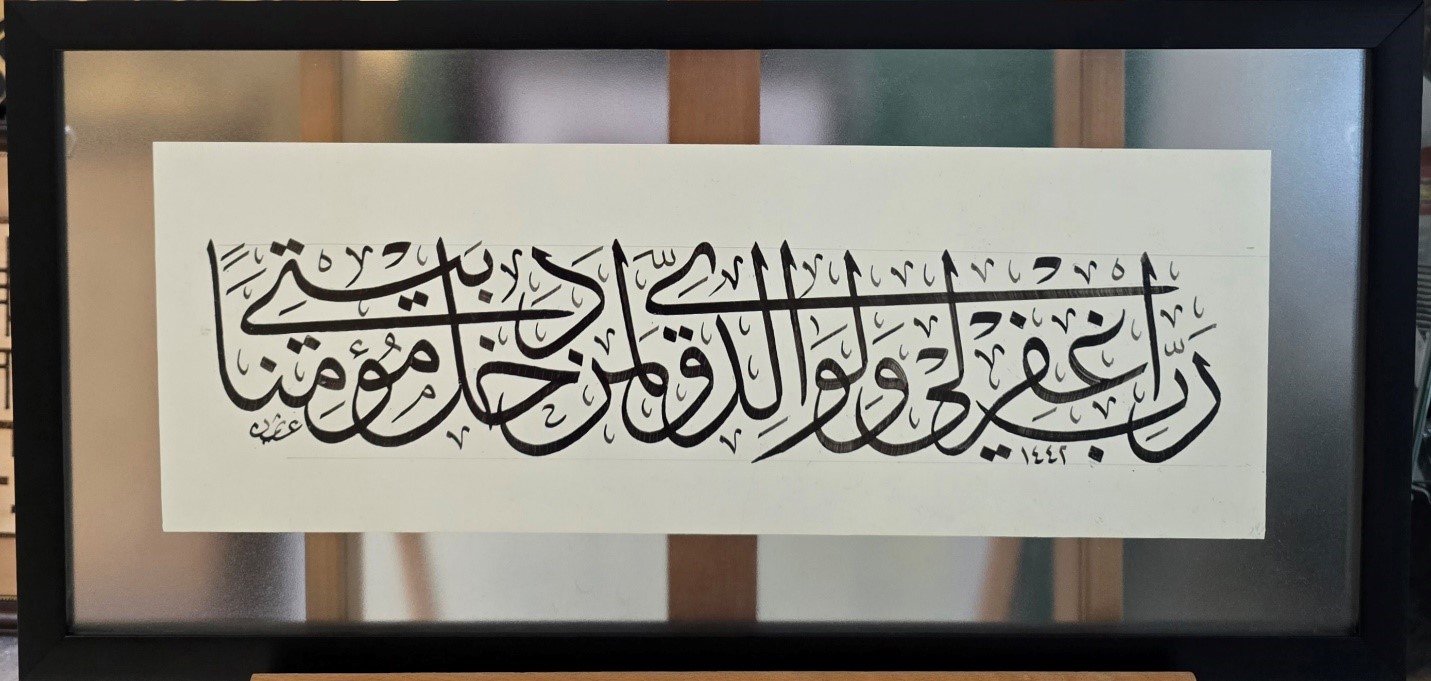 رَبِّ اغْفِرْ لِي وَلِوَالِدَيَّ وَلِمَن دَخَلَ بَيْتِيَ مُؤْمِنًا
١٤٤٢